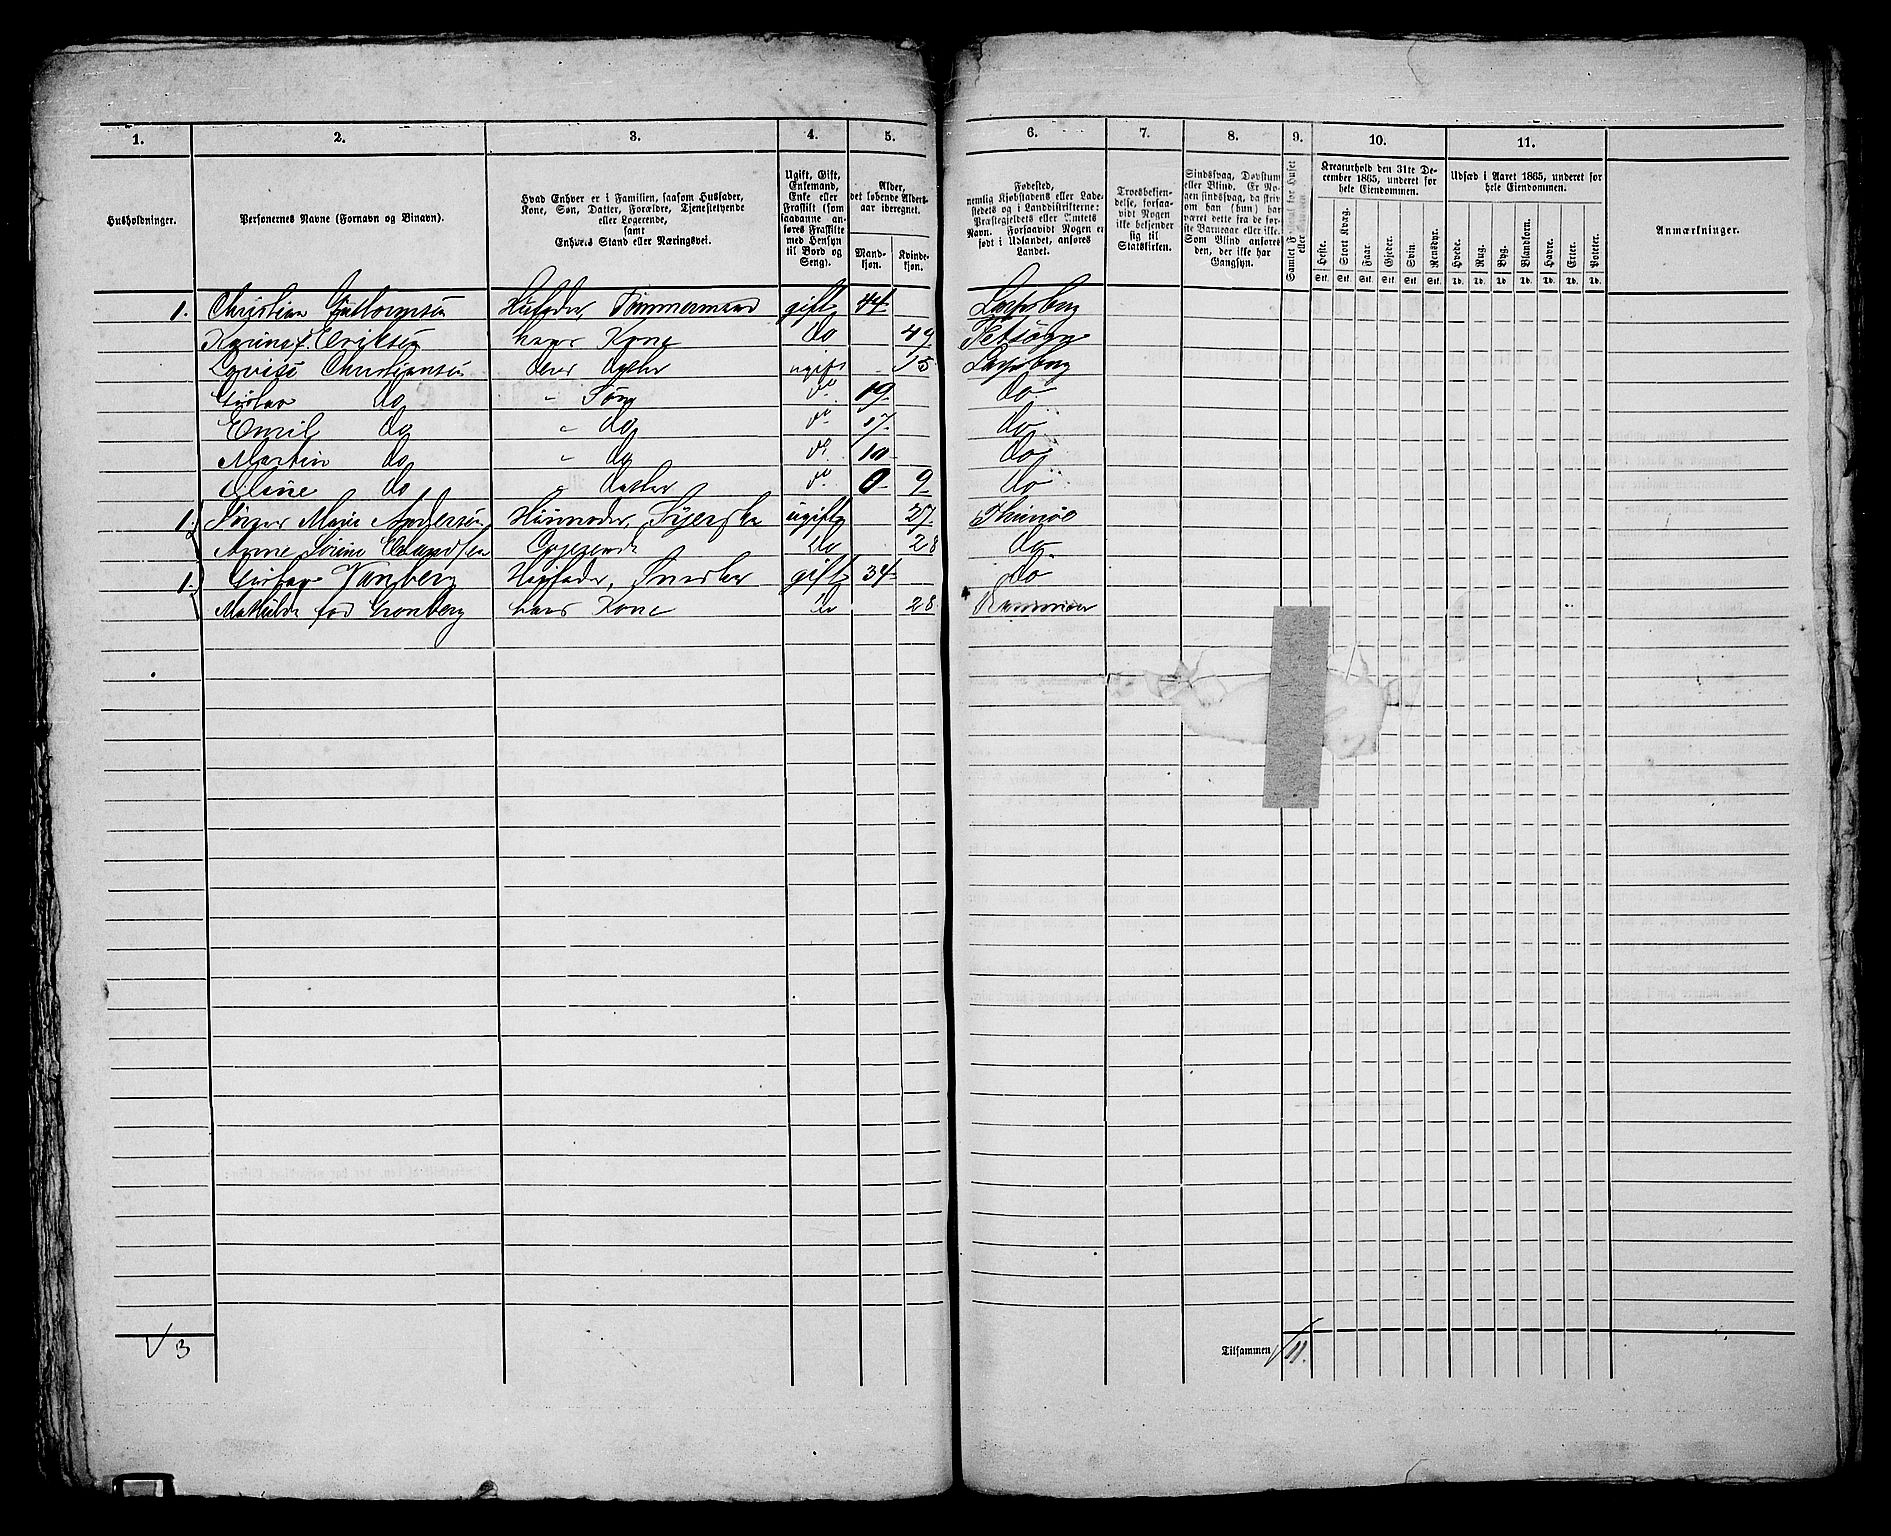 1. 2. 3. 4. 5. 6. 7. 8. 9. 10. 11.
Husholdninger.
Personernes Navne (Fornavn og Binavn).
Hvad Enhver er i Familien, saasom Husfader,
Kone, Søn, Datter, Forældre, Tjenestetyende
eller Logerende,
samt
Enhvers Stand eller Næringsvei.
Ugift, Gift,
Enkemand,
Enke eller
Fraskilt (som
saadanne an-
føres Fraskilte
med Hensyn
til Bord og
Seng).
Alder,
det løbende Alders-
aar iberegnet.
Mand-
kjøn.
Kvinde-
kjøn.
Fødested,
nemlig Kjøbstadens eller Lade-
stedets og i Landdistrikterne:
Præstegjeldets eller Amtets
Navn. Forsaavidt Nogen er
født i Udlandet, anføres
Landet.
Troesbekjen-
delse, forsaa-
vidt Nogen
ikke bekjender
sig til
Statskirken.
Sindssvag, Døvstum
eller Blind. Er No-
gen sindssvag, da skriv
om han (hun) har
været dette fra de før-
ste Barneaar eller ikke.
Som Blind anføres
den, der ikke har
Gangsyn.
Kreaturhold den 31te De-
cember 1865, underet for
hele Eiendommen.
Heste. Stort Kvæg. Faar. Gjeder. Svin. Rensdyr.
Stk. Stk. Stk. Stk. Stk. Stk.
Udsæd i Aaret 1865, underet for
hele Eiendommen.
Hvede. Rug. Byg. Blandkorn. Havre. Erter. Poteter.
Td. Td. Td. Td. Td. Td. Td.
Anmærkninger.
1. Christian Guttormsen Husfader, Tømmermand gift 44
Karine f. Eriksen hans Kone do 49
Lovise Christiansen deres datter ugift 15
Gustav do " Søn do 19 do
Emil do " do do 17 do
Martin do " do do 10 do
Oline do " datter do 0 9 do
1. Marie Andersen Huusmoder, Syerske ugift 27
Anne Sørine Logerende do 28 do
1. Gustav Husfader, Snedker gift 34 do
Mathilde fød Cronberg hans Kone do 28
3
Tilsammen 11.